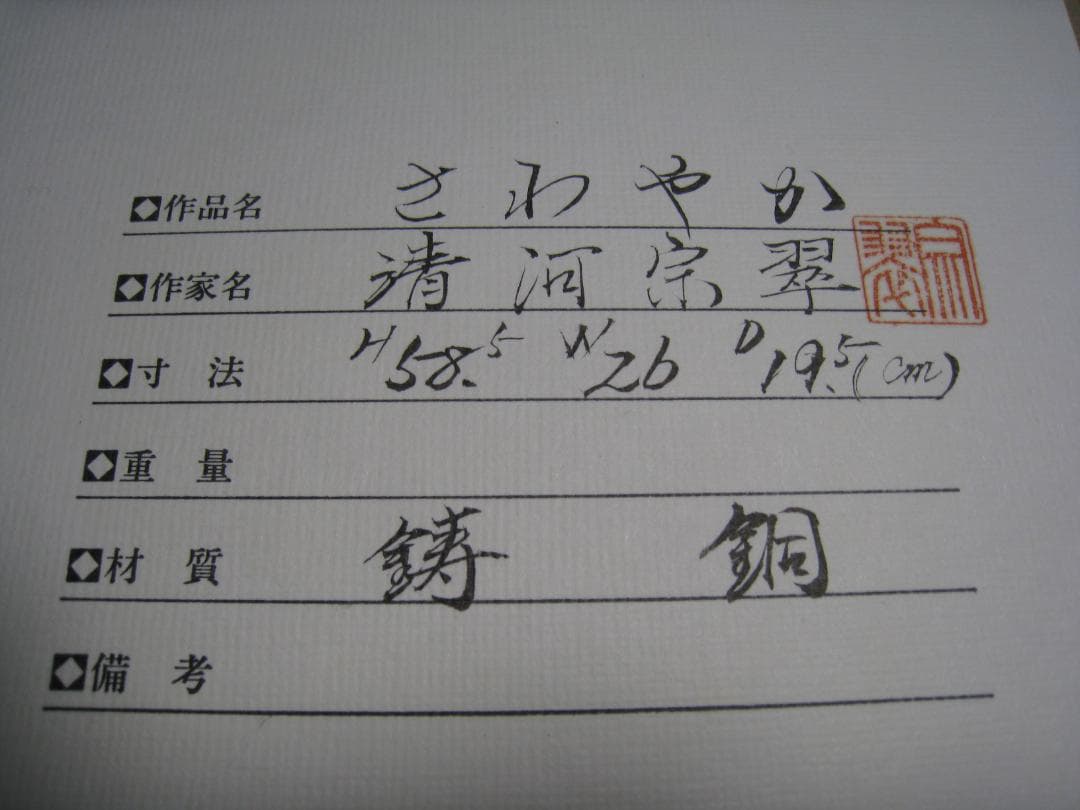 ◆作品名 さわやか
◆作家名 清河宗翠
◆寸法 H58.5 W26 D19.5(cm)
◆重量
◆材質 鋳銅
◆備考